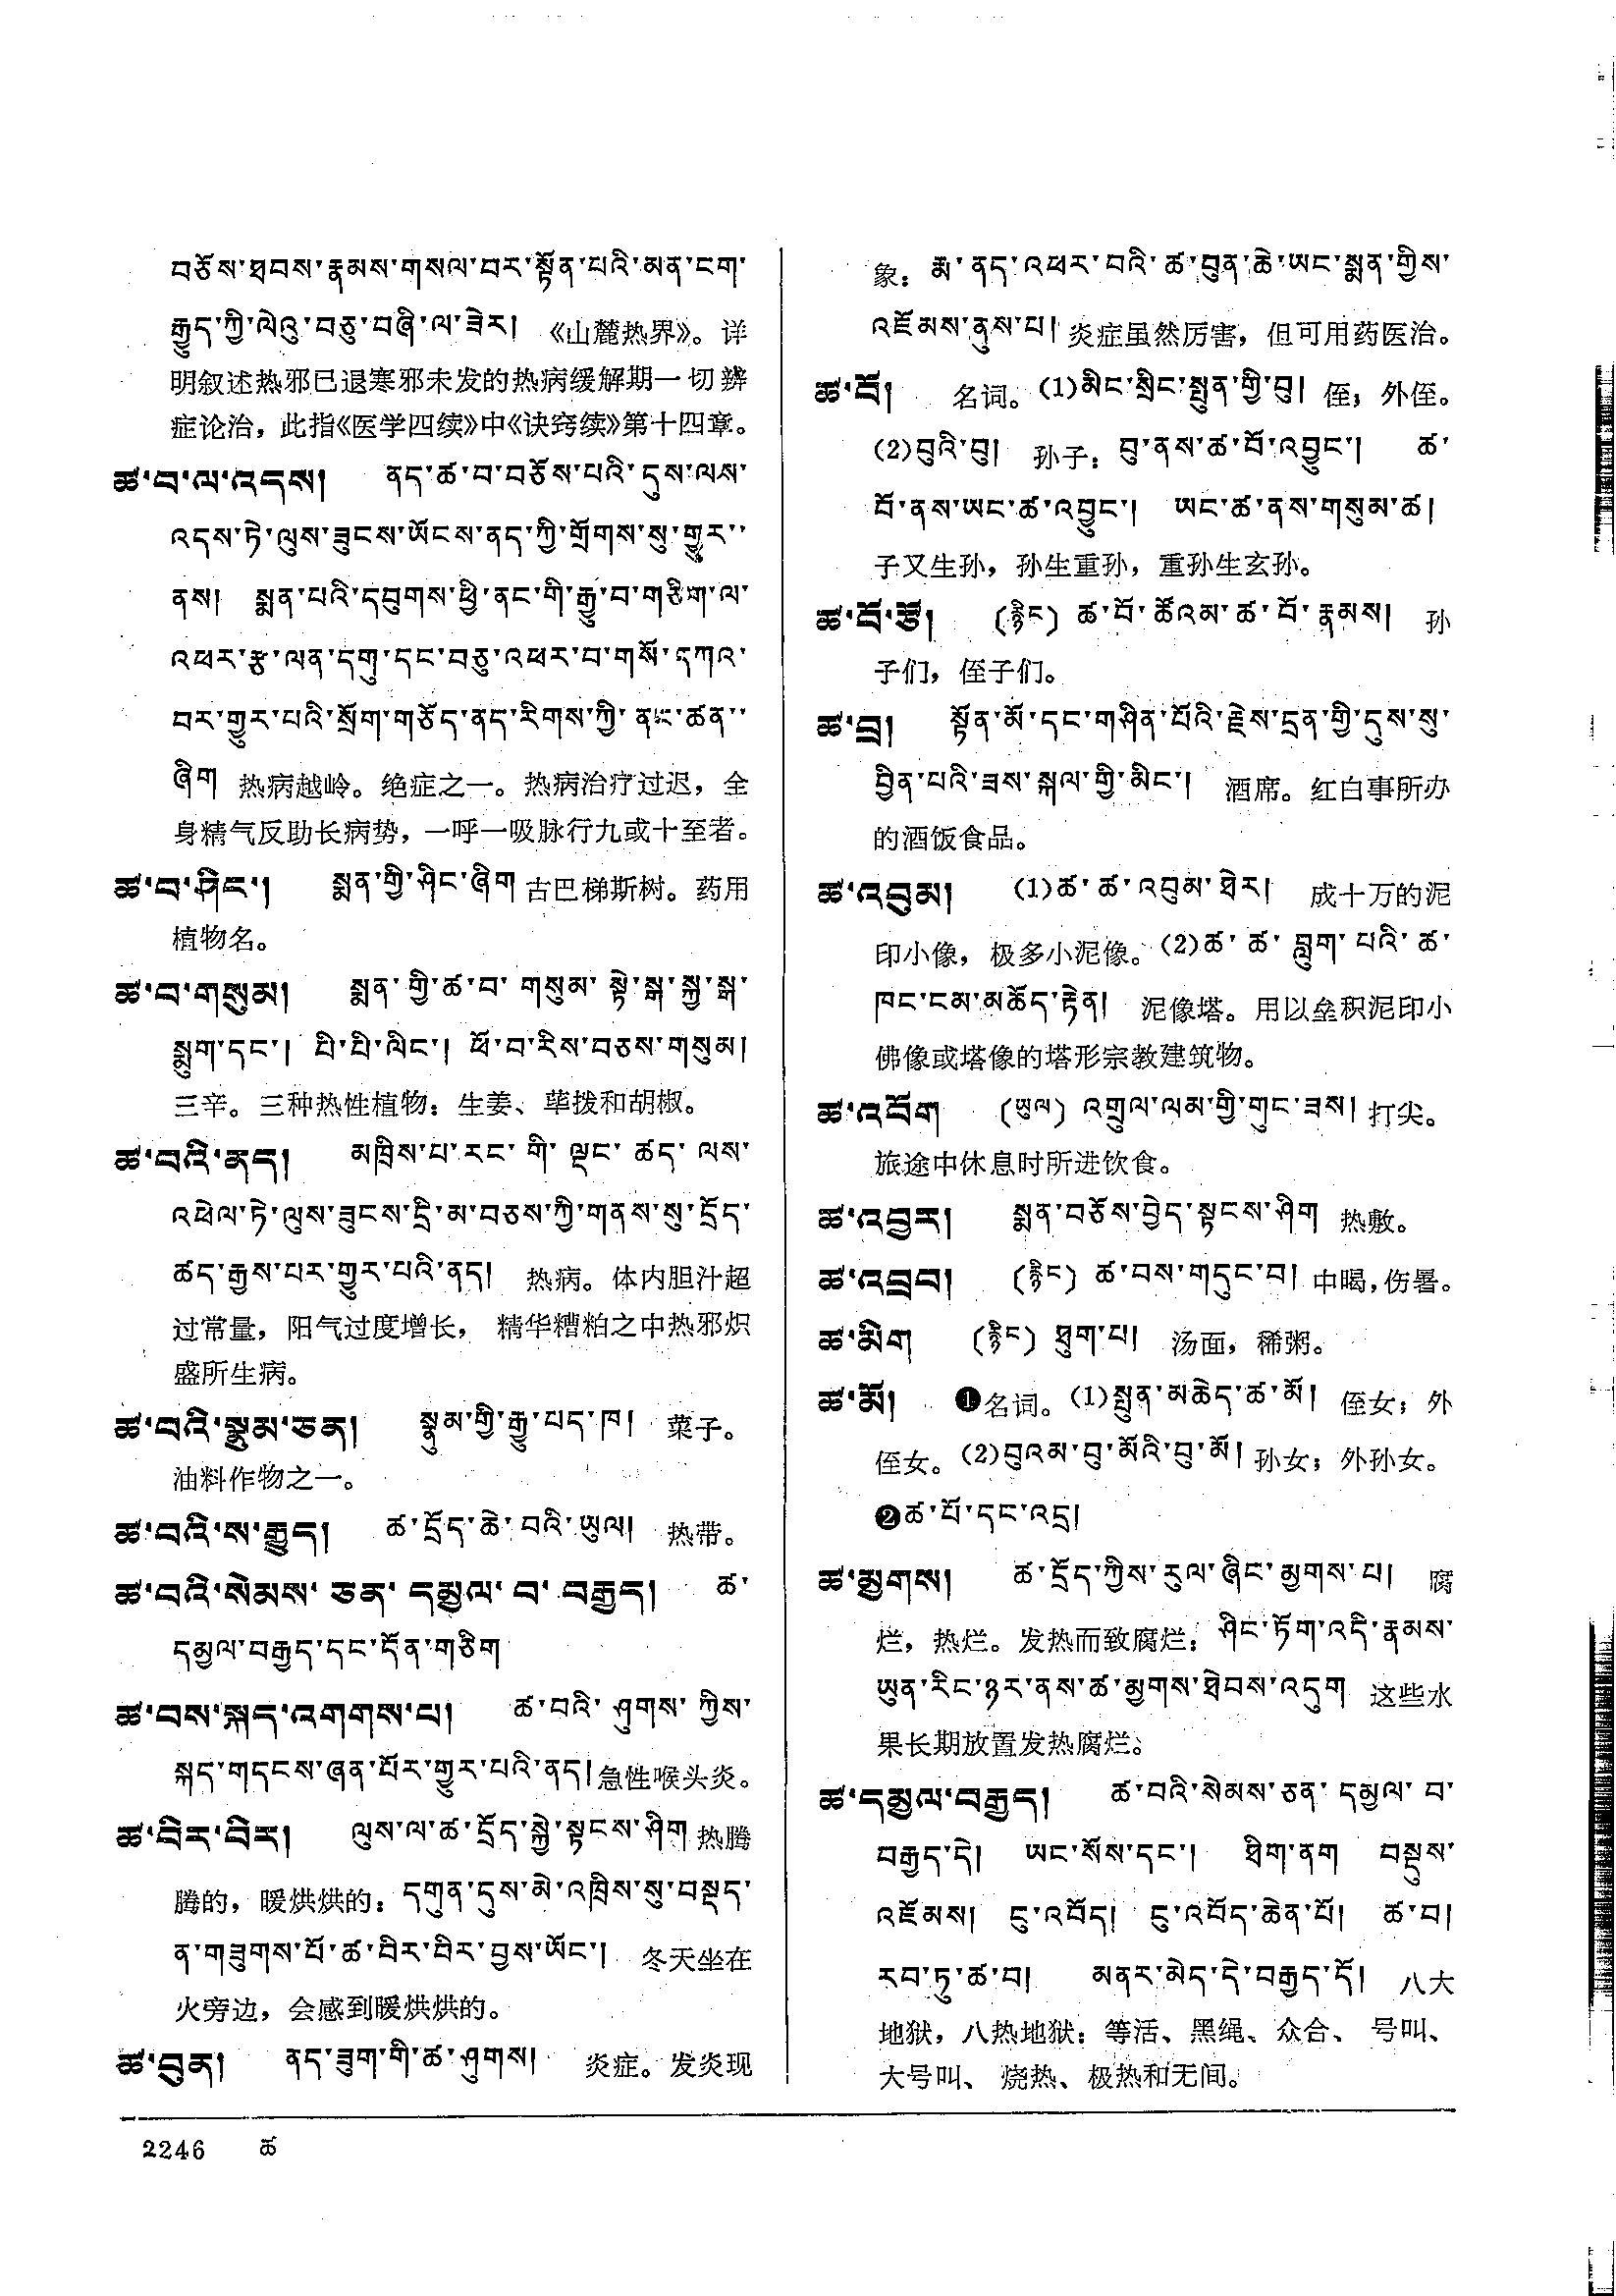 བཅོས་ཐབས་རྣམས་གསལ་བར་སྟོན་པའི་མན་ངག་
རྒྱུད་ཀྱི་ལེའུ་བཅུ་བཞི་ལ་ཟེར། 《山麓热界》。详
明叙述热邪已退寒邪未发的热病缓解期一切辨
症论治，此指《医学四续》中《诀窍续》第十四章。
ཚ་བ་ལ་འདས། ནད་ཚ་བ་བཅོས་པའི་དུས་ལས་
འདས་ཏེ་ལུས་ཟུངས་ཡོངས་ནད་ཀྱི་གྲོགས་སུ་གྱུར་
ནས། སྨན་པའི་དབུགས་ཕྱི་ནང་གི་རྒྱུ་བ་གཅིག་ལ་
འཕར་རྩ་ལན་དགུ་དང་བཅུ་འཕར་བ་གསོ་དཀའ་
བར་གྱུར་པའི་སྲོག་གཅོད་ནད་རིགས་ཀྱི་ནང་ཚན་
ཞིག 热病越岭。绝症之一。热病治疗过迟，全
身精气反助长病势，一呼一吸脉行九或十至者。
ཚ་བ་ཤིང་། སྨན་གྱི་ཤིང་ཞིག 古巴梯斯树。药用
植物名。
ཚ་བ་གསུམ། སྨན་གྱི་ཚ་བ་གསུམ་སྟེ་སྒ་སྐྱ་སྒ་
སྨུག་དང་། པི་པི་ལིང་། ཕོ་བ་རིས་བཅས་གསུམ།
三辛。三种热性植物：生姜、荜拨和胡椒。
ཚ་བའི་ནད། མཁྲིས་པ་རང་གི་ལྡང་ཚད་ལས་
འཕེལ་ཏེ་ལུས་ཟུངས་དྲི་མ་བཅས་ཀྱི་གནས་སུ་དྲོད་
ཚད་རྒྱས་པར་གྱུར་པའི་ནད། 热病。体内胆汁超
过常量，阳气过度增长，精华糟粕之中热邪炽
盛所生病。
ཚ་བའི་སྣུམ་ཅན། སྣུམ་གྱི་རྒྱུ་པད་ཁ། 菜子。
油料作物之一。
ཚ་བའི་ས་རྒྱུད། ཚ་དྲོད་ཆེ་བའི་ཡུལ། 热带。
ཚ་བའི་སེམས་ཅན་དམྱལ་བ་བརྒྱད། ཚ་
དམྱལ་བརྒྱད་དང་དོན་གཅིག
ཚ་བས་སྐད་འགགས་པ། ཚ་བའི་ཤུགས་ཀྱིས་
སྐད་གདངས་ཞན་པོར་གྱུར་པའི་ནད། 急性喉头炎。
ཚ་བེར་བེར། ལུས་ལ་ཚ་དྲོད་སྐྱེ་སྟངས་ཤིག 热腾
腾的，暖烘烘的：དགུན་དུས་མེ་འཁྲིས་སུ་བསྡད་
ན་གཟུགས་པོ་ཚ་བེར་བེར་བྱས་ཡོང་། 冬天坐在
火旁边，会感到暖烘烘的。
ཚ་བུན། ནད་ཟུག་གི་ཚ་ཤུགས། 炎症。发炎现
象：རྨ་ནད་འཕར་བའི་ཚ་བུན་ཆེ་ཡང་སྨན་གྱིས་
འཇོམས་ནུས་པ། 炎症虽然厉害，但可用药医治。
ཚ་བོ། 名词。(1)མིང་སྲིང་སྤུན་གྱི་བུ། 侄；外侄。
(2)བུའི་བུ། 孙子：བུ་ནས་ཚ་བོ་འབྱུང་། ཚ་
བོ་ནས་ཡང་ཚ་འབྱུང་། ཡང་ཚ་ནས་གསུམ་ཚ།
子又生孙，孙生重孙，重孙生玄孙。
ཚ་བོ་ཙོ། (རྙིང) ཚ་བོ་ཚོའམ་ཚ་བོ་རྣམས། 孙
子们，侄子们。
ཚ་བྲ། སྟོན་མོ་དང་གཤིན་པོའི་རྗེས་དྲན་གྱི་དུས་སུ་
བྱིན་པའི་ཟས་སྐལ་གྱི་མིང་། 酒席。红白事所办
的酒饭食品。
ཚ་འབུམ། (1)ཚ་ཚ་འབུམ་ཐེར། 成十万的泥
印小像，极多小泥像。(2)ཚ་ཚ་བླུག་པའི་ཚ་
ཁང་ངམ་མཆོད་རྟེན། 泥像塔。用以垒积泥印小
佛像或塔像的塔形宗教建筑物。
ཚ་འབོག (ཡུལ) འགྲུལ་ལམ་གྱི་གུང་ཟས། 打尖。
旅途中休息时所进饮食。
ཚ་འབྱར། སྨན་བཅོས་བྱེད་སྟངས་ཤིག 热敷。
ཚ་འབྲབ། (རྙིང) ཚ་བས་གདུང་བ། 中暍，伤暑。
ཚ་མིག (རྙིང) ཐུག་པ། 汤面，稀粥。
ཚ་མོ། ❶名词。(1)སྤུན་མཆེད་ཚ་མོ། 侄女；外
侄女。(2)བུའམ་བུ་མོའི་བུ་མོ། 孙女；外孙女。
❷ཚ་པོ་དང་འདྲ།
ཚ་མྱགས། ཚ་དྲོད་ཀྱིས་རུལ་ཞིང་མྱགས་པ། 腐
烂，热烂。发热而致腐烂：ཤིང་ཏོག་འདི་རྣམས་
ཡུན་རིང་ཉར་ནས་ཚ་མྱགས་ཐེབས་འདུག 这些水
果长期放置发热腐烂。
ཚ་དམྱལ་བརྒྱད། ཚ་བའི་སེམས་ཅན་དམྱལ་བ་
བརྒྱད་དེ། ཡང་སོས་དང་། ཐིག་ནག བསྡུས་
འཇོམས། ངུ་འབོད། ངུ་འབོད་ཆེན་པོ། ཚ་བ།
རབ་ཏུ་ཚ་བ། མནར་མེད་དེ་བརྒྱད་དོ། 八大
地狱，八热地狱：等活、黑绳、众合、号叫、
大号叫、烧热、极热和无间。
2246 ཚ